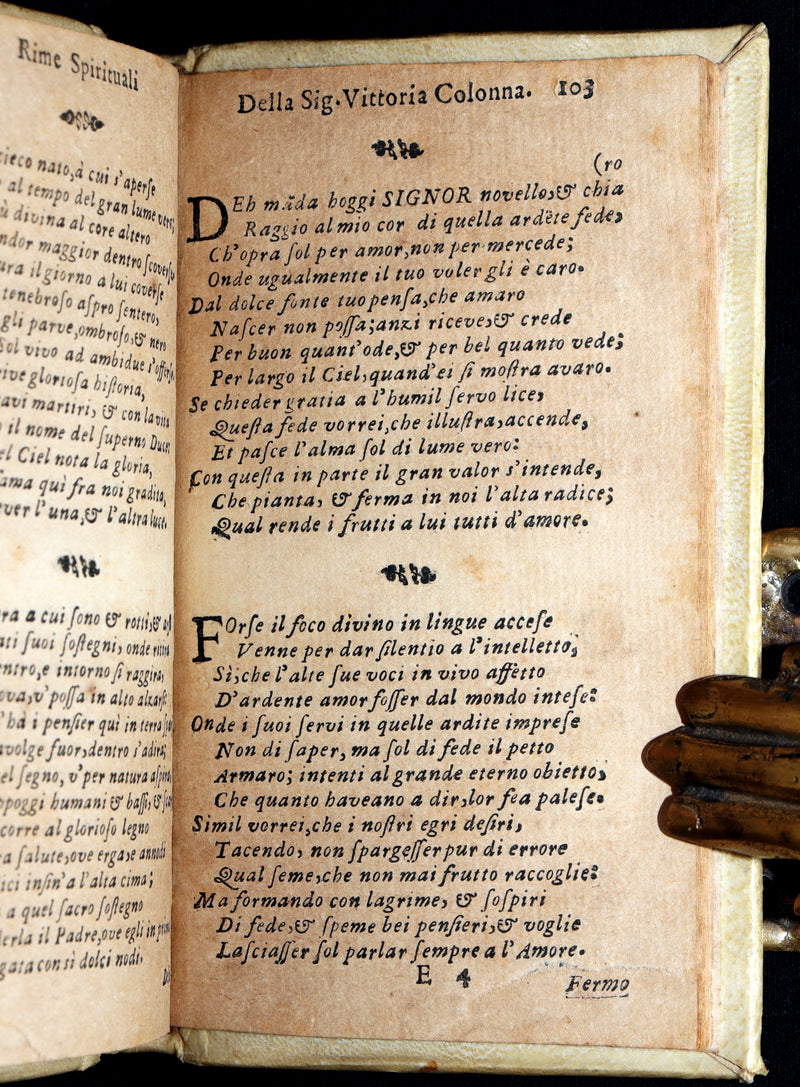 Rime Spirituali
cieco nato, à cui s'aperse
al tempo del gran lume vero;
divina al core altero
maggior dentro scoverse
il giorno a lui coverse
tenebroso aspro sentero,
gli parve, ombroso, & nero
Sol vivo ad ambidue s'offerse
gloriosa historia,
martiri, & con la vita
il nome del superno Duce;
Ciel nota la gloria,
qui fra noi gradita,
l'una, & l'altra luce.
a cui sono & rotti, &
suoi sostegni, onde
e intorno si raggira,
v'possa in alto alzarsi
i pensier qui in terra
fuor, dentro s'adira;
segno, v'per natura aspira
humani & bassi, &
al glorioso legno
salute, ove erga, e annodi
infin'a l'alta cima;
a quel sacro sostegno
il Padre, ove egli in prima
con sì dolci nodi.
Della Sig. Vittoria Colonna. 103
(ro
DEh māda hoggi SIGNOR novello, & chia
Raggio al mio cor di quella ardēte fede,
Ch'opra sol per amor, non per mercede;
Onde ugualmente il tuo voler gli è caro.
Dal dolce fonte tuo pensa, che amaro
Nascer non possa; anzi riceve, & crede
Per buon quant'ode, & per bel quanto vede;
Per largo il Ciel, quand'ei si mostra avaro.
Se chieder gratia a l'humil servo lice,
Questa fede vorrei, che illustra, accende,
Et pasce l'alma sol di lume vero:
Con questa in parte il gran valor s'intende,
Che pianta, & ferma in noi l'alta radice;
Qual rende i frutti a lui tutti d'amore.
FOrse il foco divino in lingue accese
Venne per dar silentio a l'intelletto,
Sì, che l'alte sue voci in vivo affetto
D'ardente amor fosser dal mondo intese:
Onde i suoi servi in quelle ardite imprese
Non di saper, ma sol di fede il petto
Armaro; intenti al grande eterno obietto,
Che quanto haveano a dir, lor fea palese.
Simil vorrei, che i nostri egri desiri,
Tacendo, non spargesser pur di errore
Qual seme, che non mai frutto raccoglie:
Ma formando con lagrime, & sospiri
Di fede, & speme bei pensieri, & voglie
Lasciasser sol parlar sempre a l'Amore.
E 4
Fermo